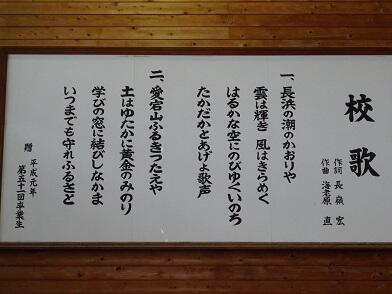 校歌
作詞 長嶺 宏
作曲 海老原 直
一、長浜の潮のかおりや
雲は輝き 風はきらめく
はるかな空にのびゆくいのち
たかだかとあげよ歌声
二、愛宕山ふるきつたえや
土はゆたかに黄金のみのり
学びの窓に結びしなかま
いつまでも守れふるさと
贈 平成元年
第五十一回卒業生